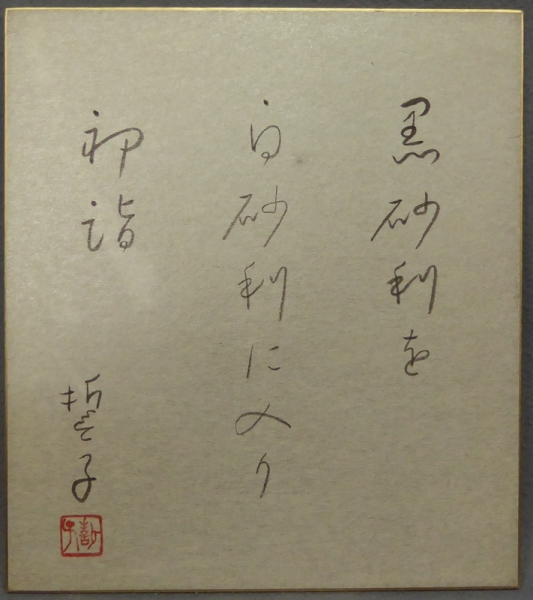 黒砂利を
白砂利に入り
初詣
誓子